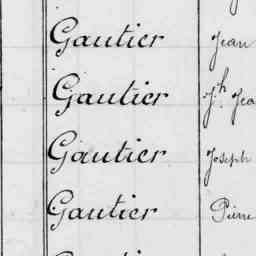 Gautier Jean
Gautier Jh. Jea
Gautier Joseph
Gautier Pierre